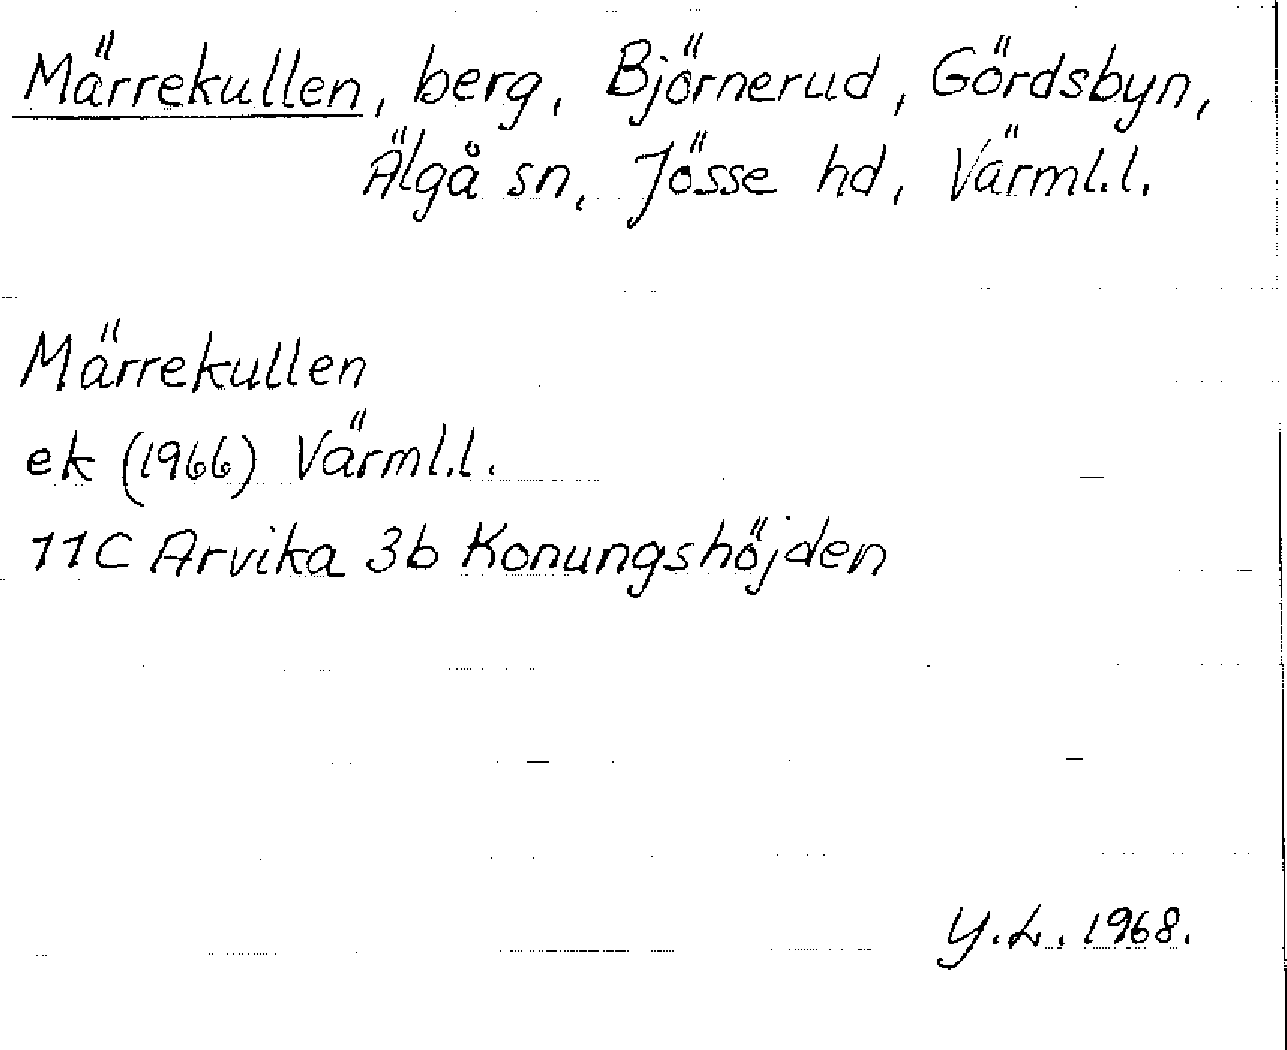 Märrekullen, berg, Björnerud, Gördsbyn,
Älgå sn, Jösse hd, Värml.l.
Märrekullen
ek (1966) Värml.l.
11C Arvika 3b Konungshöjden
Y.L. 1968.